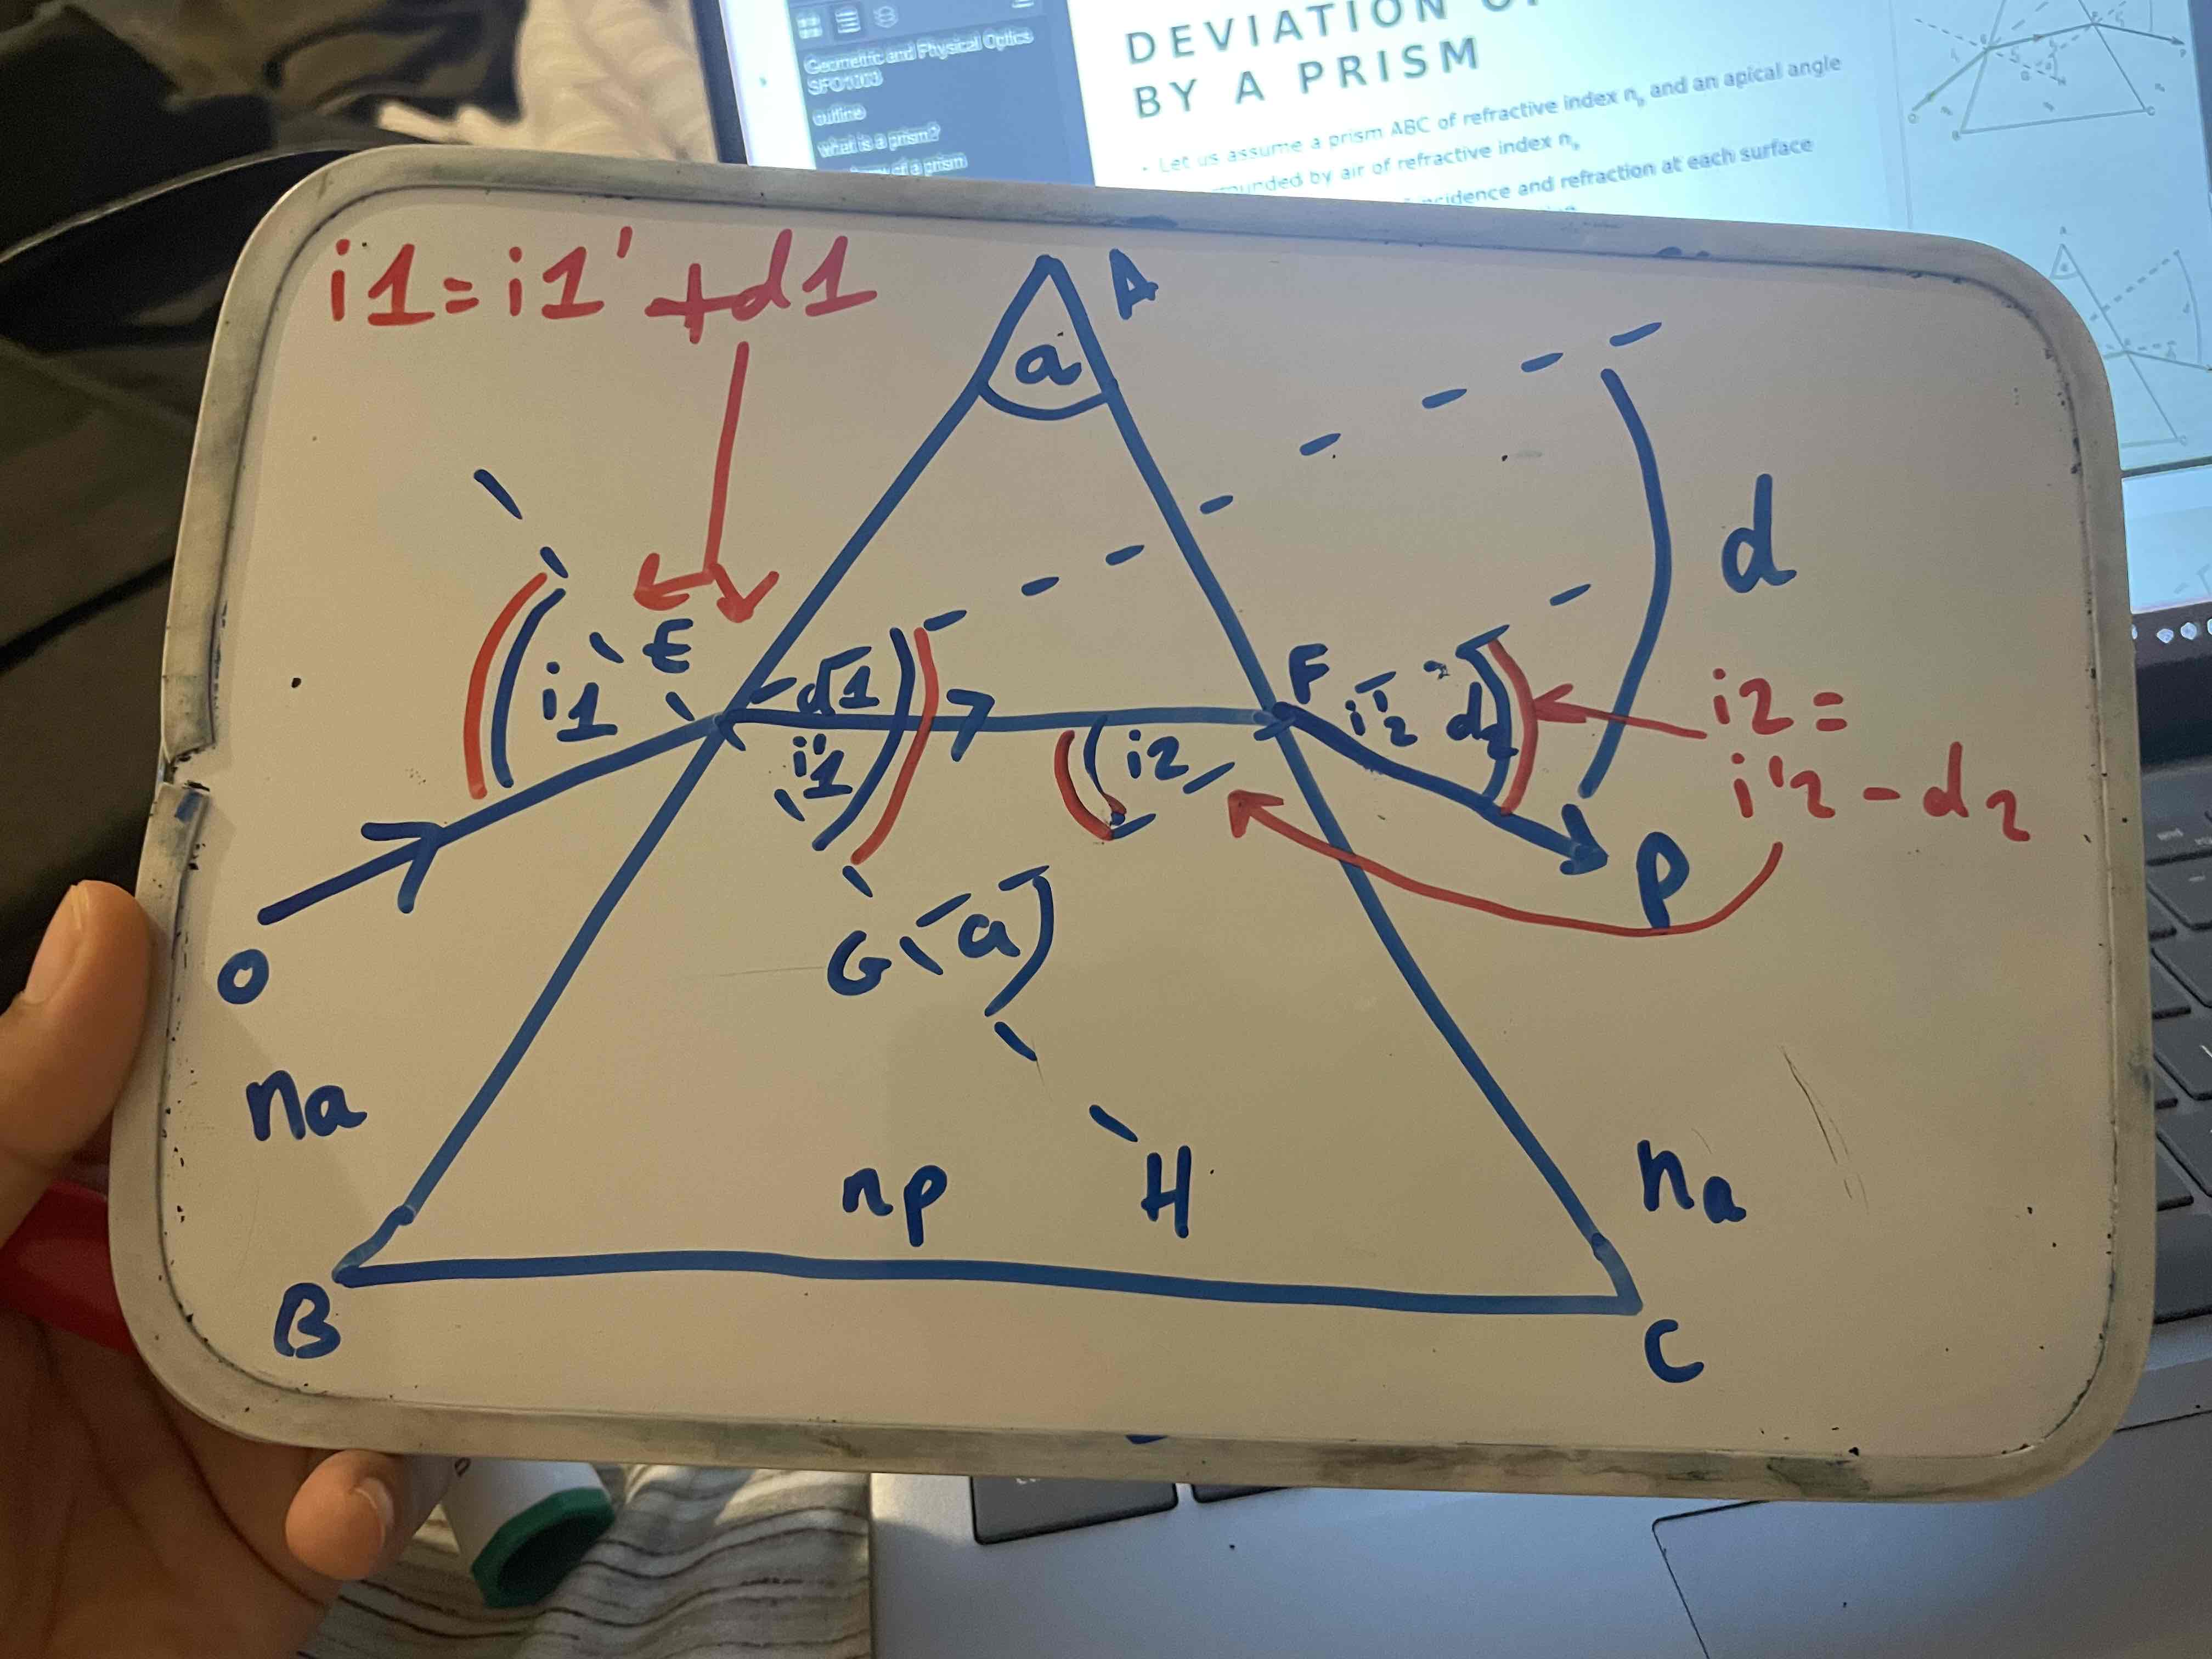 Geometric and Physical Optics
SFO1103
outline
what is a prism?
of a prism
DEVIATION
BY A PRISM
· Let us assume a prism ABC of refractive index np and an apical angle
rounded by air of refractive index na
incidence and refraction at each surface
i1=i1' +d1
A
a
d
E
i1
d1
i'1
i2
F
i'2
d2
i2 =
i'2 - d2
P
O
G
a
na
np
H
na
B
C